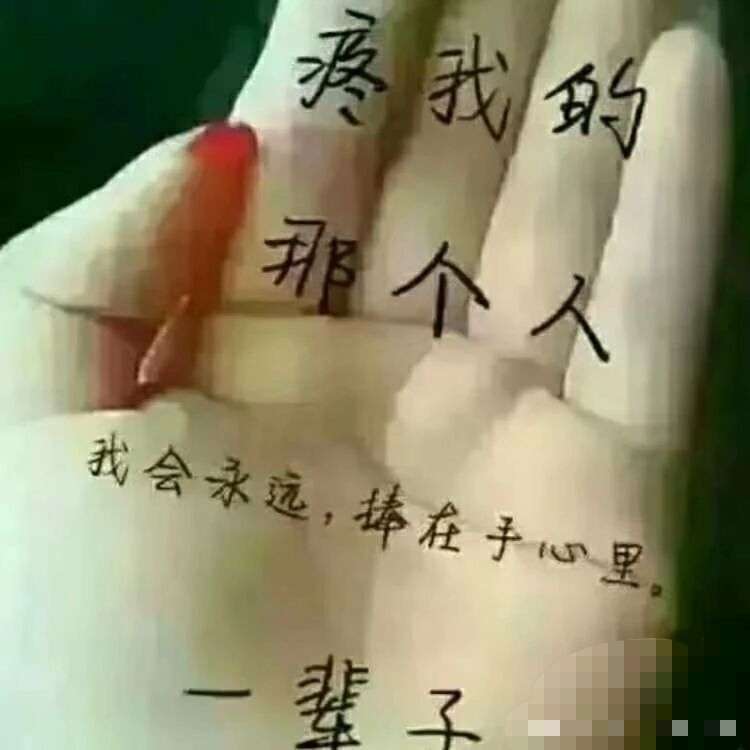 疼我的
那个人
我会永远，捧在手心里。
一辈子